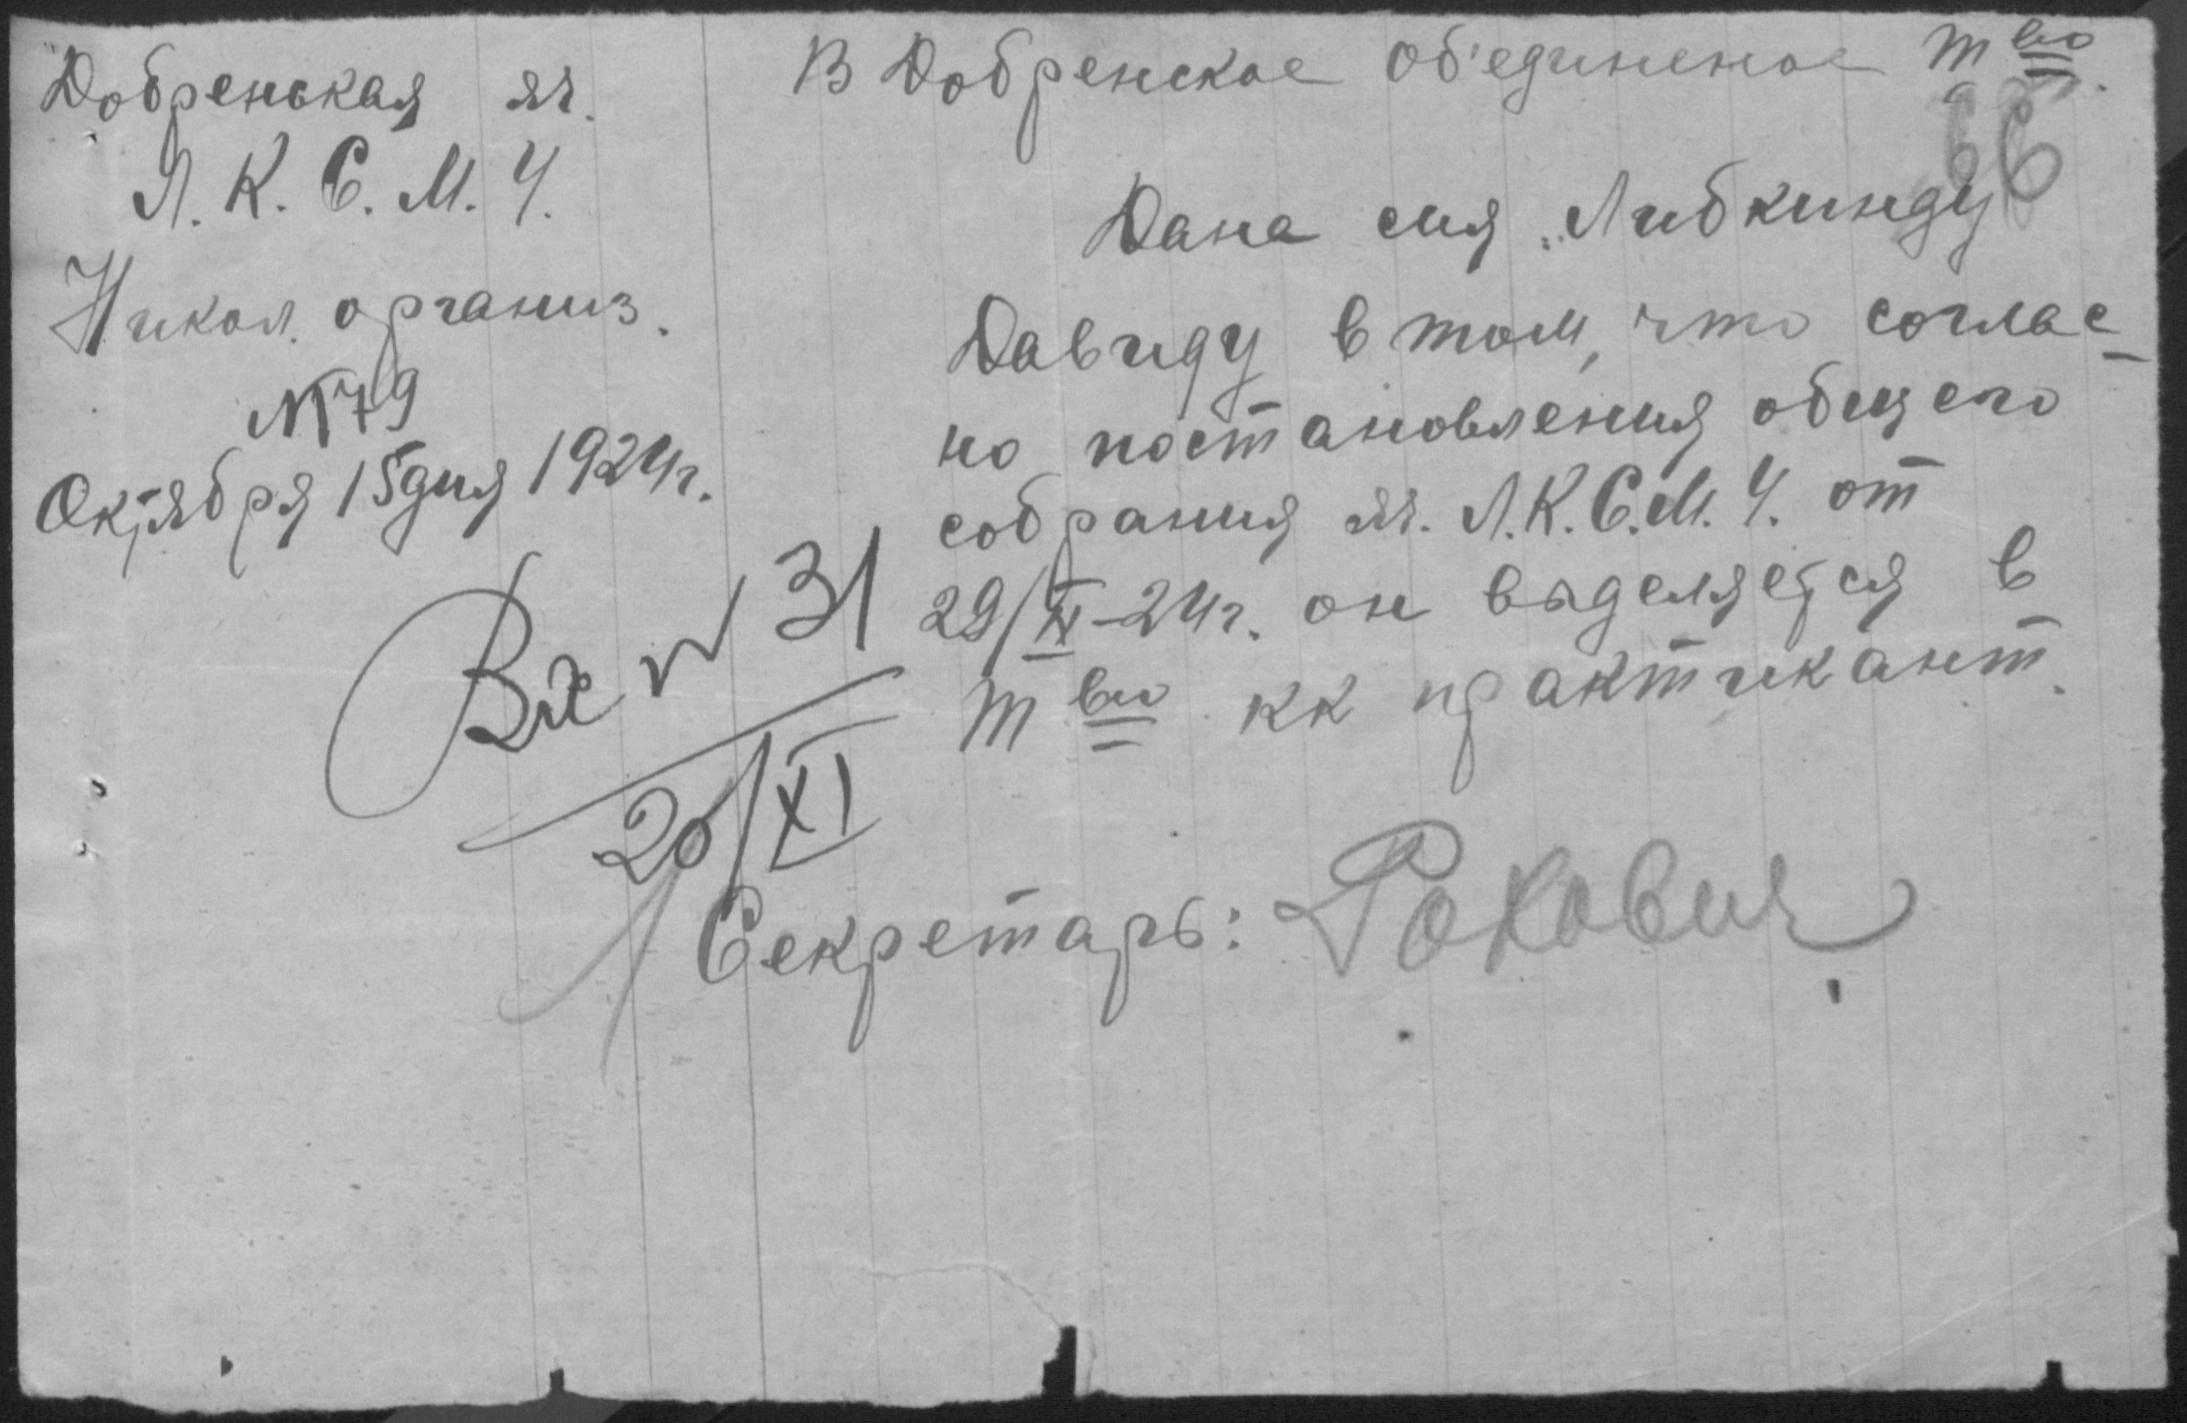 Добренькая яч.
Л. К. С. М. У.
Никол. организ.
№79
Октября 15 дня 1924 г.
В Добренское об'единеное т‑во.
66
Дана сия Либкинду
Давиду в том, что соглас-
но постановления общего
собрания яч. Л. К. С. М. У. от
29/XI-24 г. он выделяется в
т‑во кк практикант.
Вх N 31
20/XI
Секретарь: Рохович